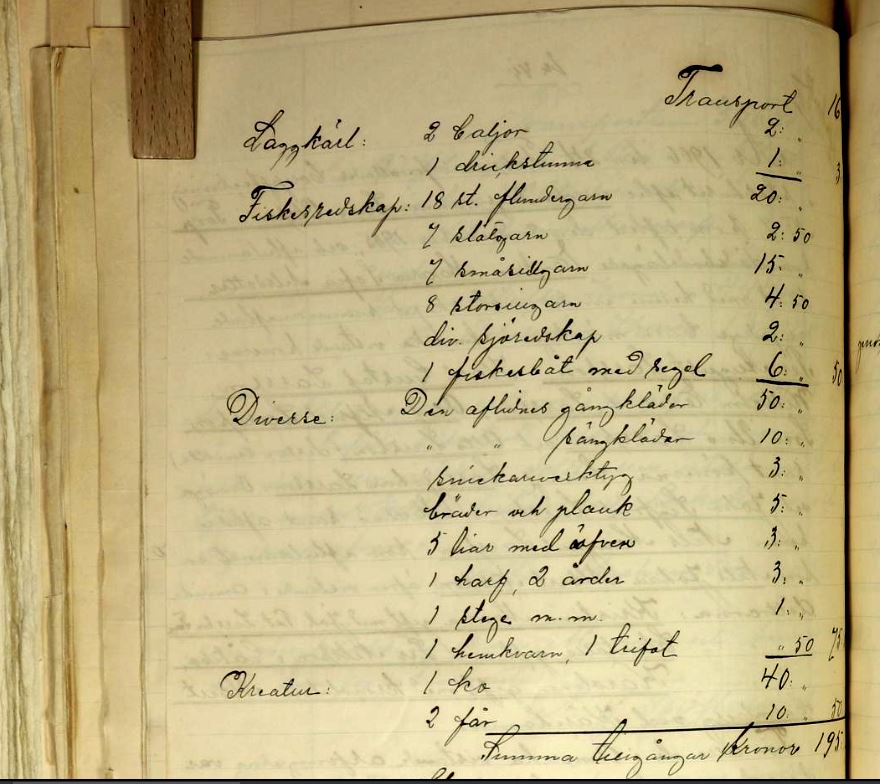 Transport 16
Laggkärl: 2 baljor 2: "
1 drickstunna 1: " 3
Fiskeredskap: 18 st. flundergarn 20: "
7 slätgarn 2: 50
7 småsillgarn 15: "
8 storsillgarn 4: 50
div. sjöredskap 2: "
1 fiskesbåt med segel 6: " 50
Diverse: Den aflidnes gångkläder 50: "
" " sängkläder 10: "
snickareverktyg 3: "
bräder och plank 5: "
5 liar med 3: "
1 harf, 2 årder 3: "
1 stege m.m. 1: "
1 hemkvarn, 1 trifot " 50 75
Kreatur: 1 ko 40: "
2 får 10: " 50
Summa tillgångar Kronor 195